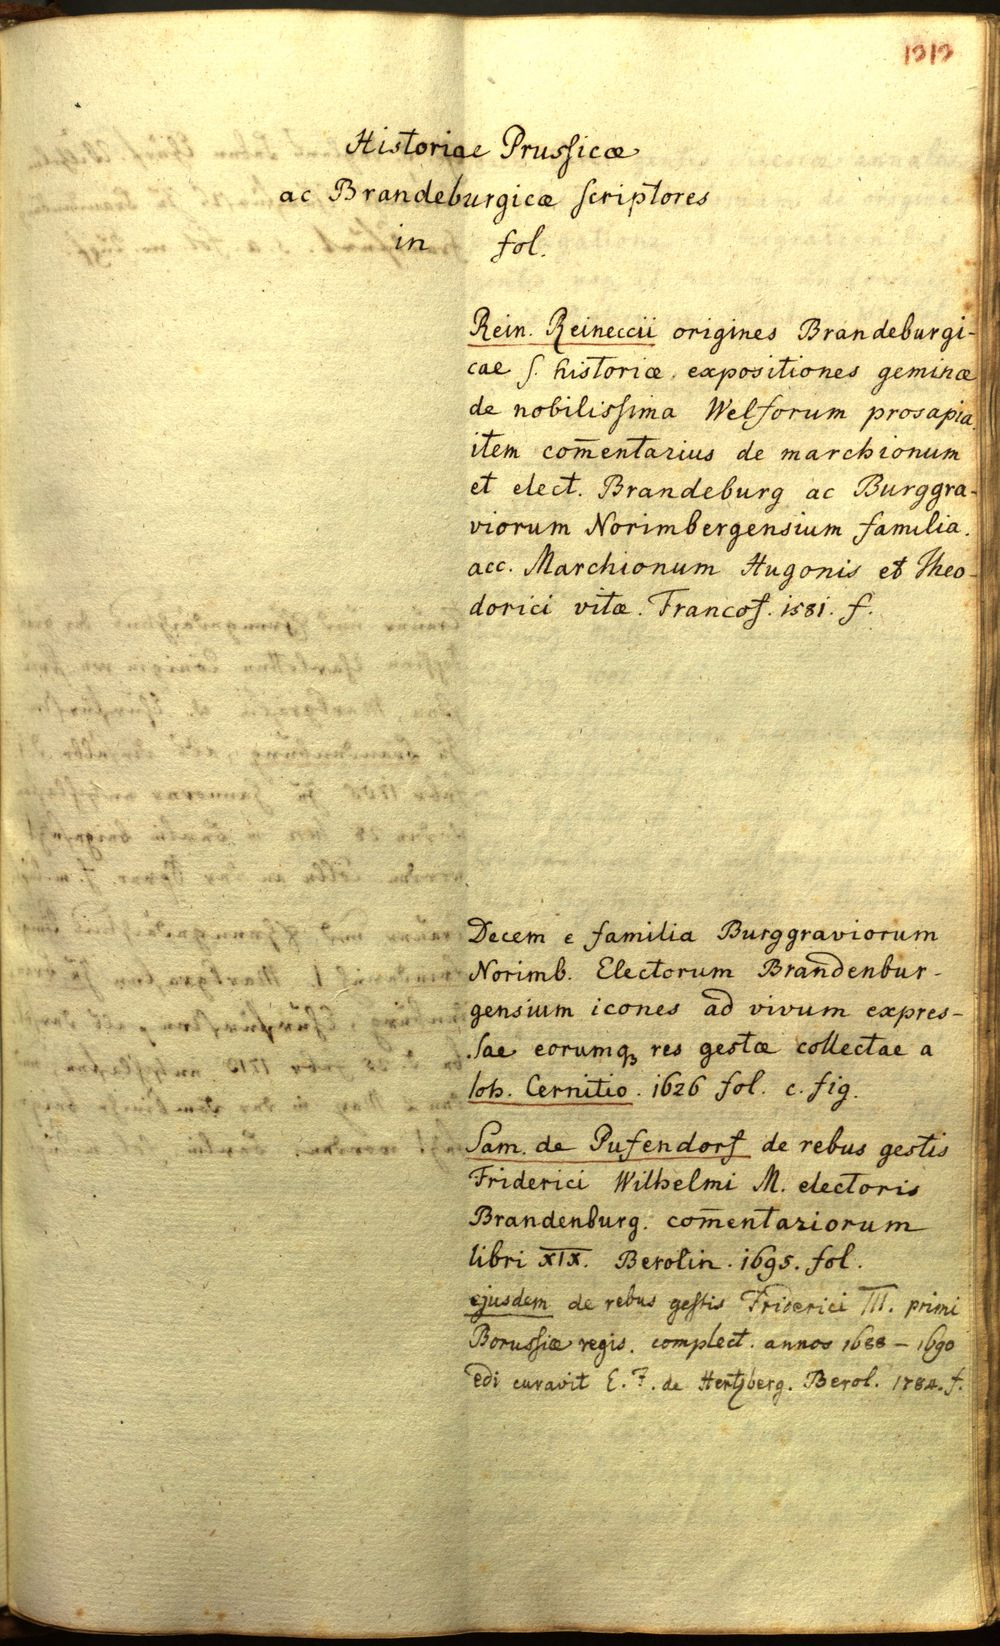 1212
Historiae Prussicæ
ac Brandeburgicæ scriptores
in fol.
Rein. Reineccii origines Brandeburgi-
cae s. historiæ expositiones geminæ
de nobilissima Welforum prosapia.
item com̄entarius de marchionum
et elect. Brandeburg ac Burggra-
viorum Norimbergensium familia.
acc. Marchionum Hugonis et Theo-
dorici vitæ. Francof. 1581. f.
Decem e familia Burggraviorum
Norimb. Electorum Brandenbur-
gensium icones ad vivum expres-
sae eorumq₃ res gestæ collectae a
Ioh. Cernitio. 1626 fol. c. fig.
Sam. de Pufendorf de rebus gestis
Friderici Wilhelmi M. electoris
Brandenburg. com̄entariorum
libri XIX. Berolin. 1695. fol.
ejusdem de rebus gestis Friderici III. primi
Borussiæ regis. complect. annos 1688 – 1690
edi curavit E. F. de Hertzberg. Berol. 1784. f.